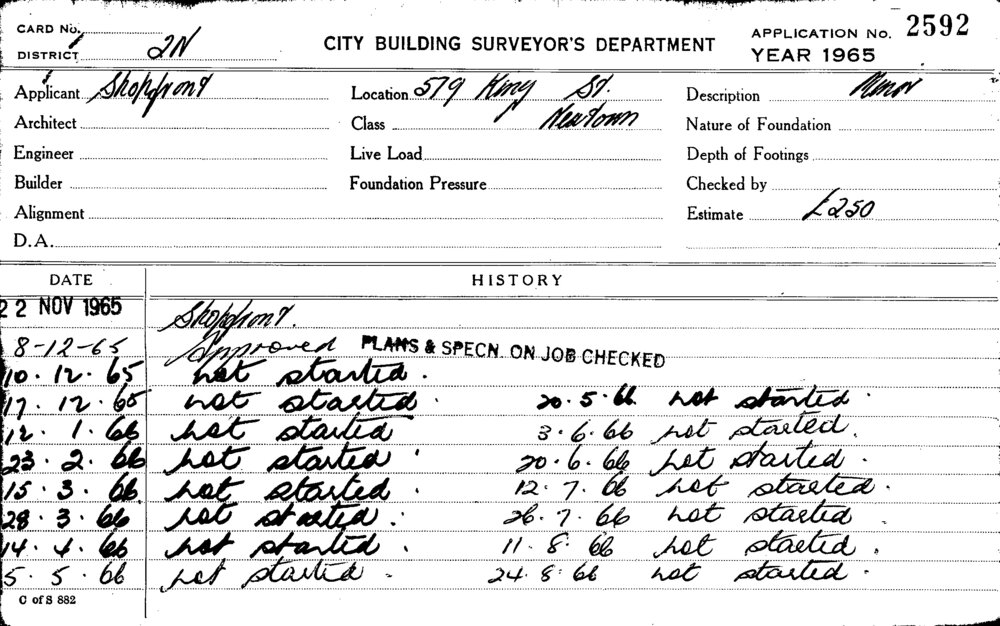 CARD No.
DISTRICT 2N
CITY BUILDING SURVEYOR'S DEPARTMENT
APPLICATION No. 2592
YEAR 1965
Applicant Shopfront
Location 579 King St.
Description Minor
Architect
Class Newtown
Nature of Foundation
Engineer
Live Load
Depth of Footings
Builder
Foundation Pressure
Checked by
Alignment
Estimate £250
D.A.
DATE HISTORY
22 NOV 1965 Shopfront.
8-12-65 Approved PLANS & SPECN. ON JOB CHECKED
10.12.65 not started.
17.12.65 not started. 20.5.66 not started.
12.1.66 not started 3.6.66 not started.
23.2.66 not started. 20.6.66 not started.
15.3.66 not started. 12.7.66 not started.
28.3.66 not started. 26.7.66 not started
14.4.66 not started. 11.8.66 not started.
5.5.66 not started. 24.8.66 not started.
C of S 882